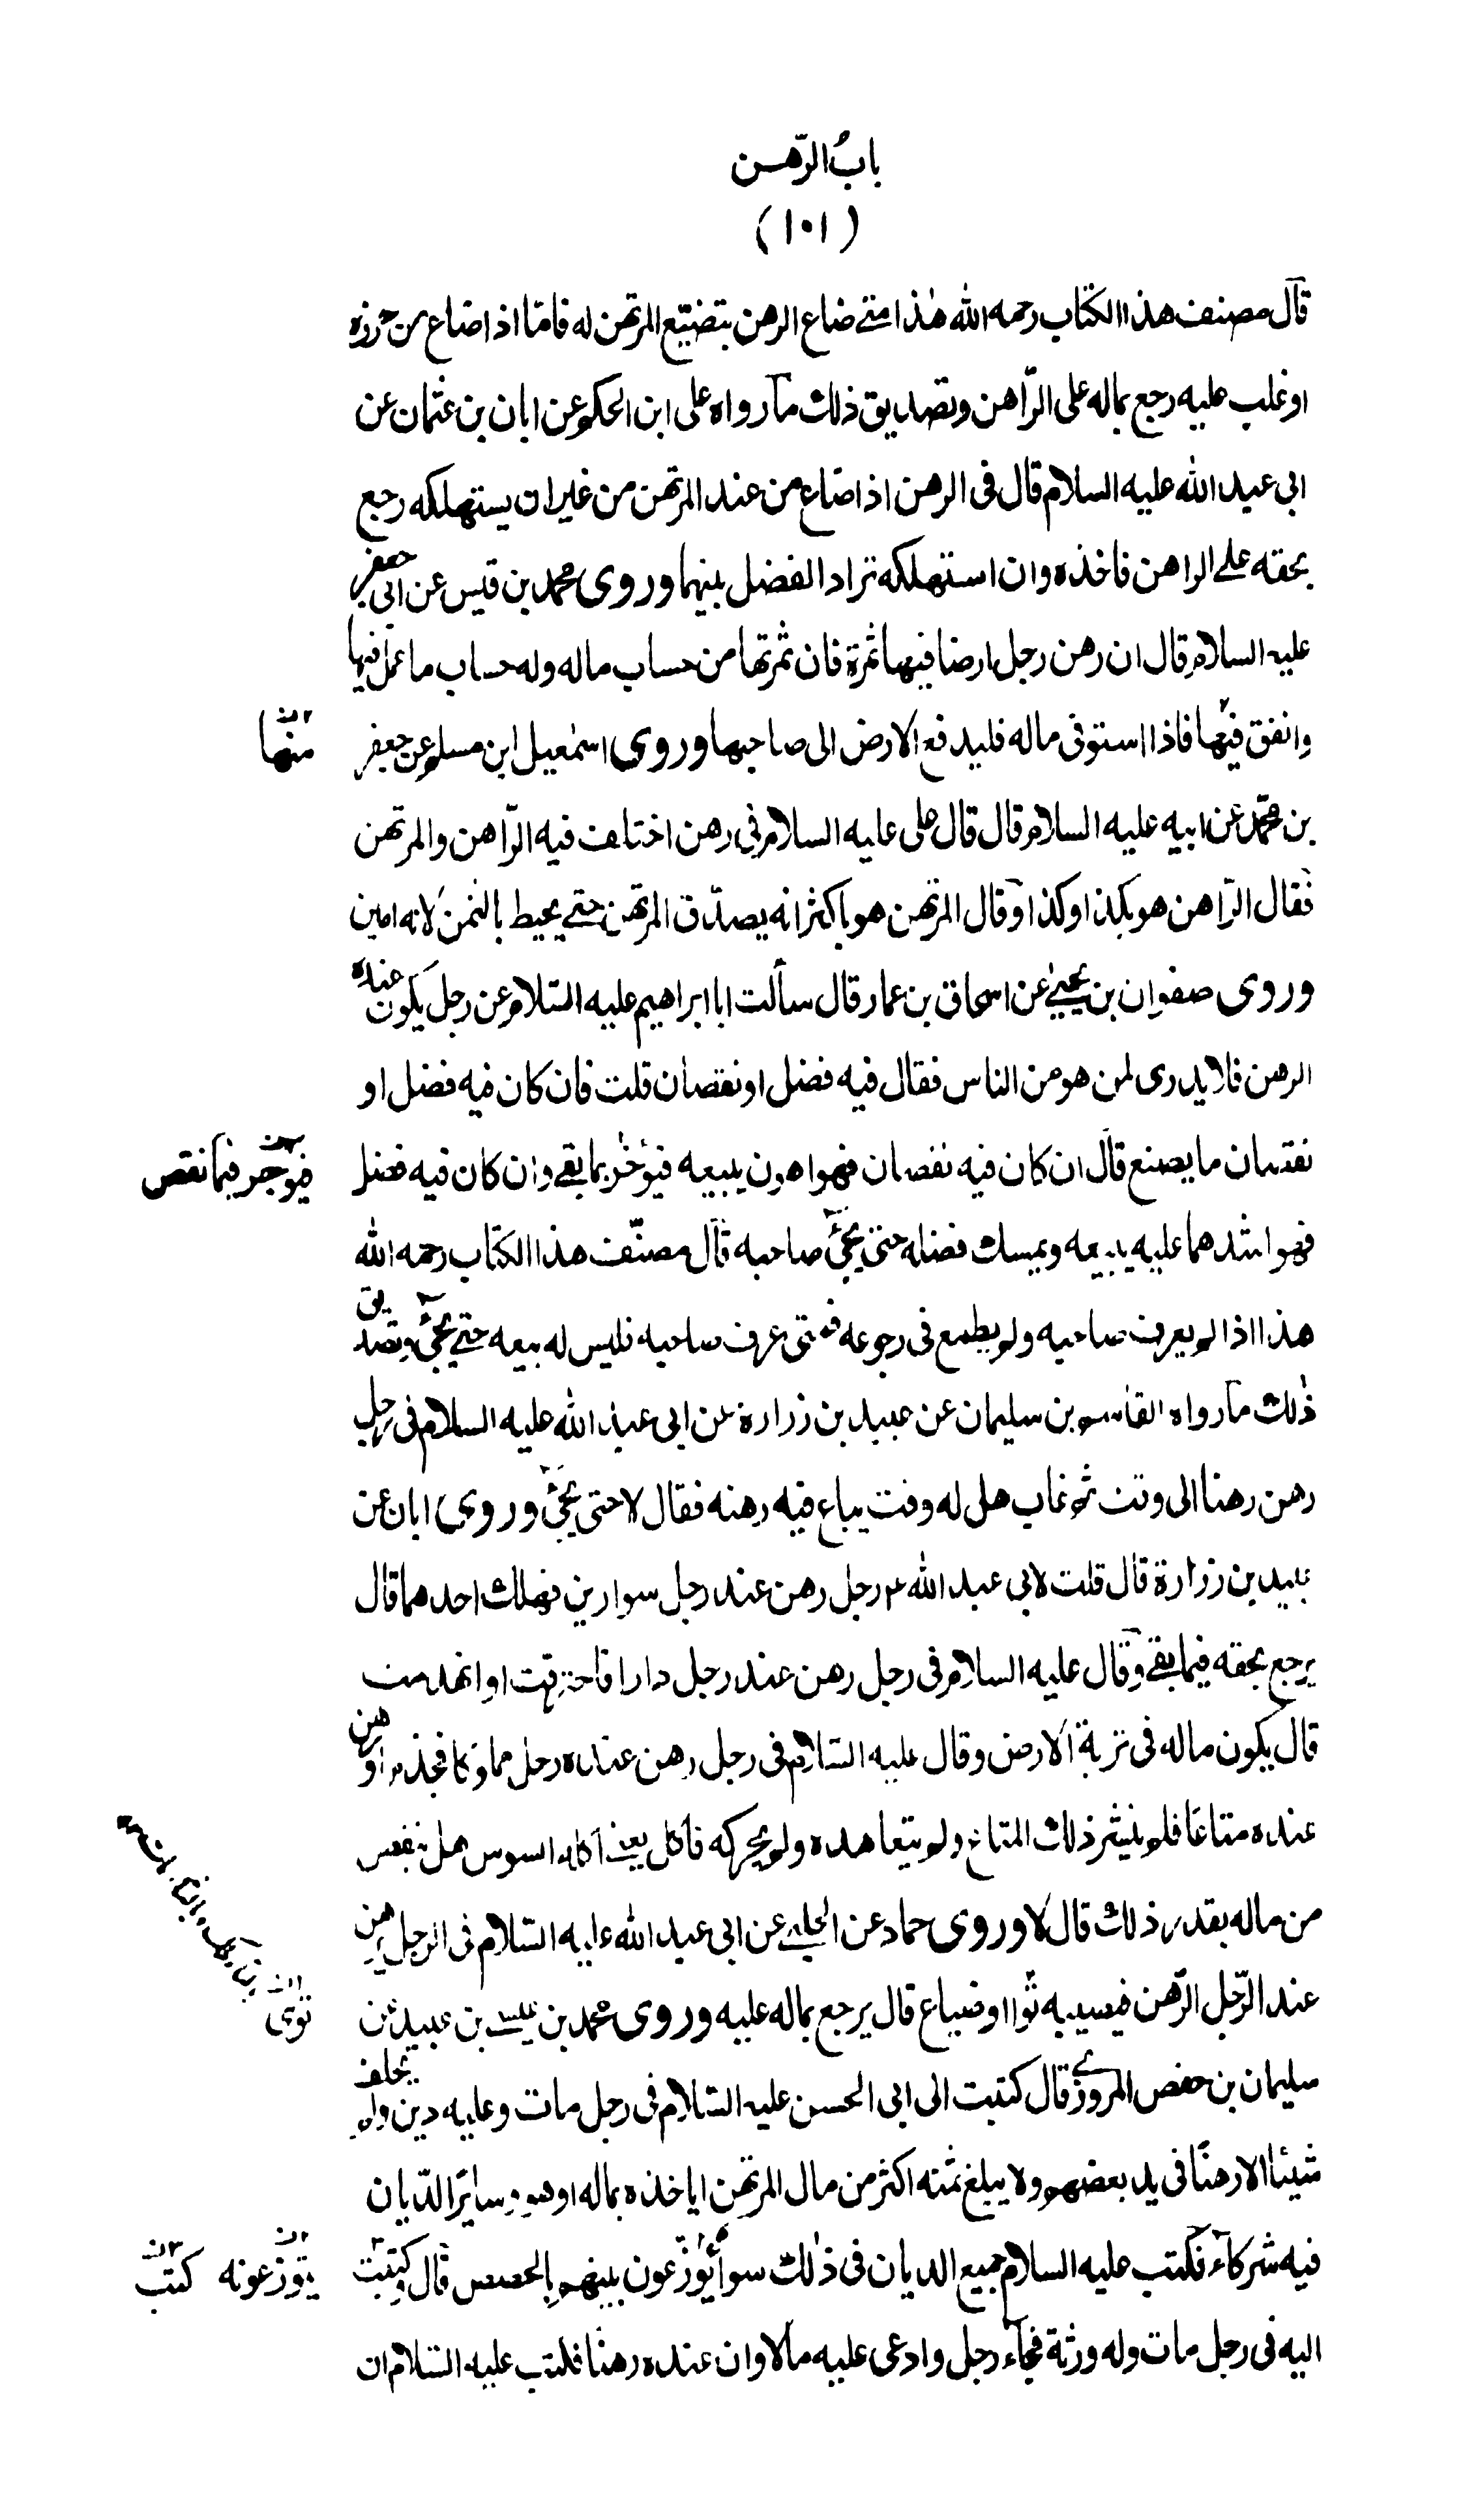 باب الرّهن
(١٠١)
قال مصنف هذا الكتاب رحمه الله هٰذا متى ضاع الرهن بتضييع المرتهن له فامّا اذا ضاع من حرزه
او غلب عليه رجع بماله على الرّاهن وتصديق ذلك ما رواه على ابن الحكم عن ابان بن عثمان عن
ابى عبد الله عليه السلام قال فى الرهن اذا ضاع من عند المرتهن من غير ان يستهلكه رجع
بحقه على الراهن فاخذه وان استهلكه ترادا الفضل بينهما وروى محمد بن قيس عن ابى جعفر
عليه السلام قال ان رهن رجل ارضا فيها ثمرة فان ثمرتها من حساب ماله وله حساب ما عمل فيها
وانفق فيها فاذا استوفى ماله فليدفع الارض الى صاحبها وروى اسمٰعيل ابن مسلم عن جعفر
منها
بن محمّد عن ابيه عليه السلام قال قال على عليه السلام فى رهن اختلف فيه الرّاهن والمرتهن
فقال الرّاهن هو بكذا وكذا وقال المرتهن هو باكثر انه يصدّق المرتهن حتى يحيط بالثمن لانه امين
وروى صفوان بن يحيىٰ عن اسحاق بن عمار قال سألت ابا ابراهيم عليه السّلام عن رجل يكون عنده
الرهن فلا يدرى لمن هو من الناس فقال فيه فضل او نقصان قلت فان كان فيه فضل او
نقصان ما يصنع قال ان كان فيه نقصان فهو اهون يبيعه فيؤخر بما بقى وان كان فيه فضل
فيوجر فيما نقص
فهو اشدهما عليه يبيعه ويمسك فضله حتى يجئ صاحبه قال مصنّف هذا الكتاب رحمه الله
هذا اذا لم يعرف صاحبه ولم يطمع فى رجوعه فمتى عرف صاحبه فليس له بيعه حتى يجئ وتصديق
ذٰلك ما رواه القاسم بن سليمان عن عبيد بن زرارة عن ابى عبد الله عليه السلام فى رجل
رهن رهنا الى وقت ثم غاب هل له وقت يباع فيه رهنه فقال لا حتى يجئ وروى ابان عن
عبيد بن زرارة قال قلت لابى عبد الله ء رجل رهن عند رجل سوارين فهلك احدهما قال
يرجع بحقه فيما بقى وقال عليه السلام فى رجل رهن عند رجل دارا فاحترقت او انهدمت
قال يكون ماله فى تربة الارض وقال عليه السّلام فى رجل رهن عنده رجل مملوكا فجذم او رهن
عنده متاعًا فلم ينشر ذلك المتاع ولم يتعاهده ولم يحركه فاكل يعنى اكله السوس هل ينقص
من ماله بقدر ذلك قال لا وروى حماد عن الحلبى عن ابى عبد الله عليه السّلام فى الرجل رهن
عند الرّجل الرّهن فيصيبه توا او ضياع قال يرجع بماله عليه وروى محمد بن عيسى بن عبيد عن
توى
سليمان بن حفص المروزى قال كتبت الى ابى الحسن عليه السّلام فى رجل مات وعليه دين ولم يخلف
شيئا الا رهنًا فى يد بعضهم ولا يبلغ ثمنه اكثر من مال المرتهن اياخذه بماله او هو وسائر الدّيان
فيه شركاء فكتب عليه السلام جميع الديان فى ذٰلك سواء يوزّعون بينهم بالحصص قال كتبت
يتوزعونه كتب
اليه فى رجل مات وله ورثة فجاء رجل وادعى عليه مالا وان عنده رهنا فكتب عليه السّلام ان